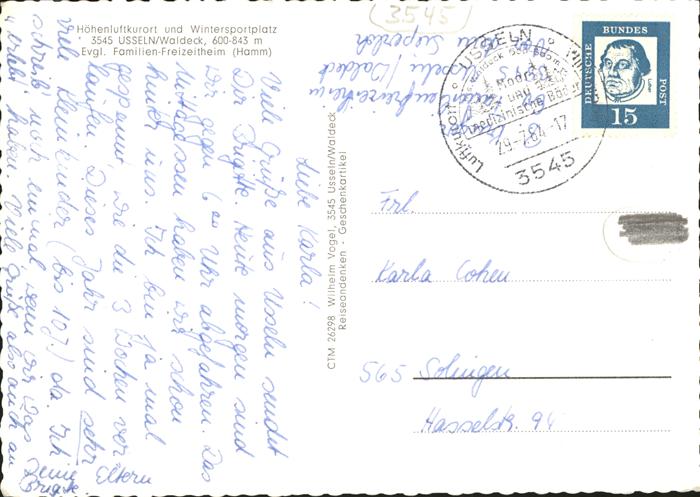 Höhenluftkurort und Wintersportplatz
3545 USSELN/Waldeck, 600-843 m
Evgl. Familien-Freizeitheim (Hamm)
3545
Liebe Karla!
Viele Grüße aus Usseln sendet
Dir Brigitte. Heute morgen sind
wir gegen 6 00 Uhr abgefahren. Das
Mittagessen haben wir schon
hinter uns. Ich bin ja mal
gespannt, wie die 3 Wochen ver
laufen. Dieses Jahr sind sehr
viele Kleinkinder (bis 10 J.) da. Ich
schreib noch einmal wenn wir was
erlebt haben. Viele Grüße also auch an
Deine Eltern
Brigitte
CTM 26298 Wilhelm Vogel, 3545 Usseln/Waldeck
Reiseandenken · Geschenkartikel
Usseln/Waldeck
USSELN
Luftkurort
Moor
und
medizinische Bäder
29.-7.64-17
3545
DEUTSCHE BUNDES POST
Luther
15
Frl.
Karla Cohen
565 Solingen
Hasselstr. 94